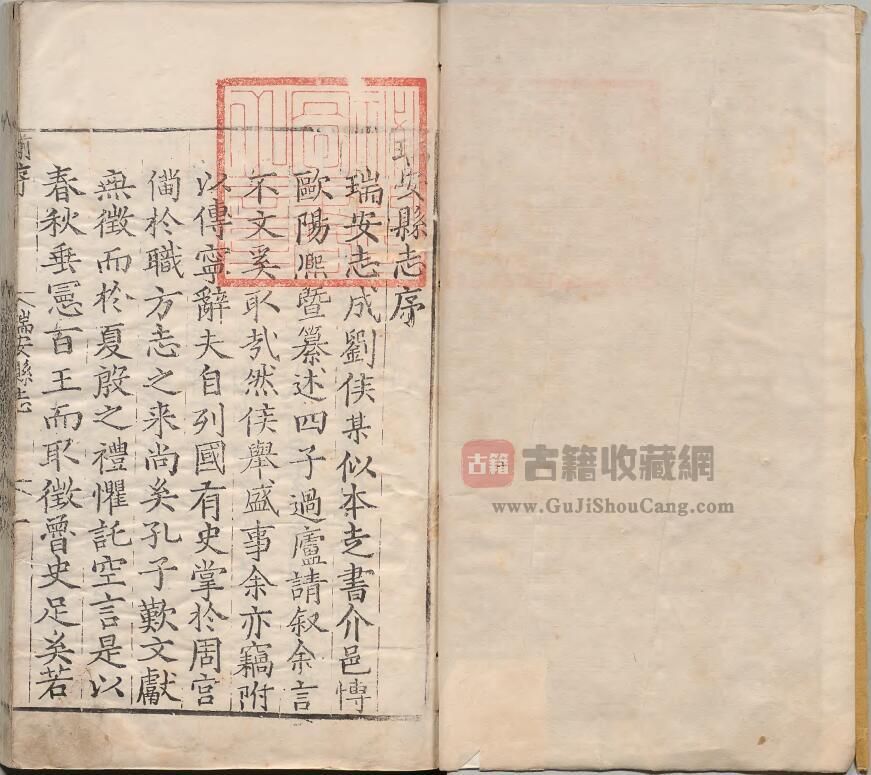 瑞安縣志序
瑞安志成劉侯某似本走書介邑愽
歐陽熈暨纂述四子過廬請叙余言
不文奚取㢤然侯舉盛事余亦竊附
以傳寧辭夫自列國有史掌於周官
僃於職方志之来尚矣孔子歎文獻
無徵而於夏殷之禮懼託空言是以
春秋垂憲百王而取徵魯史足矣若
瑞安縣志
一
古籍
古籍收藏網
www.GuJiShouCang.com